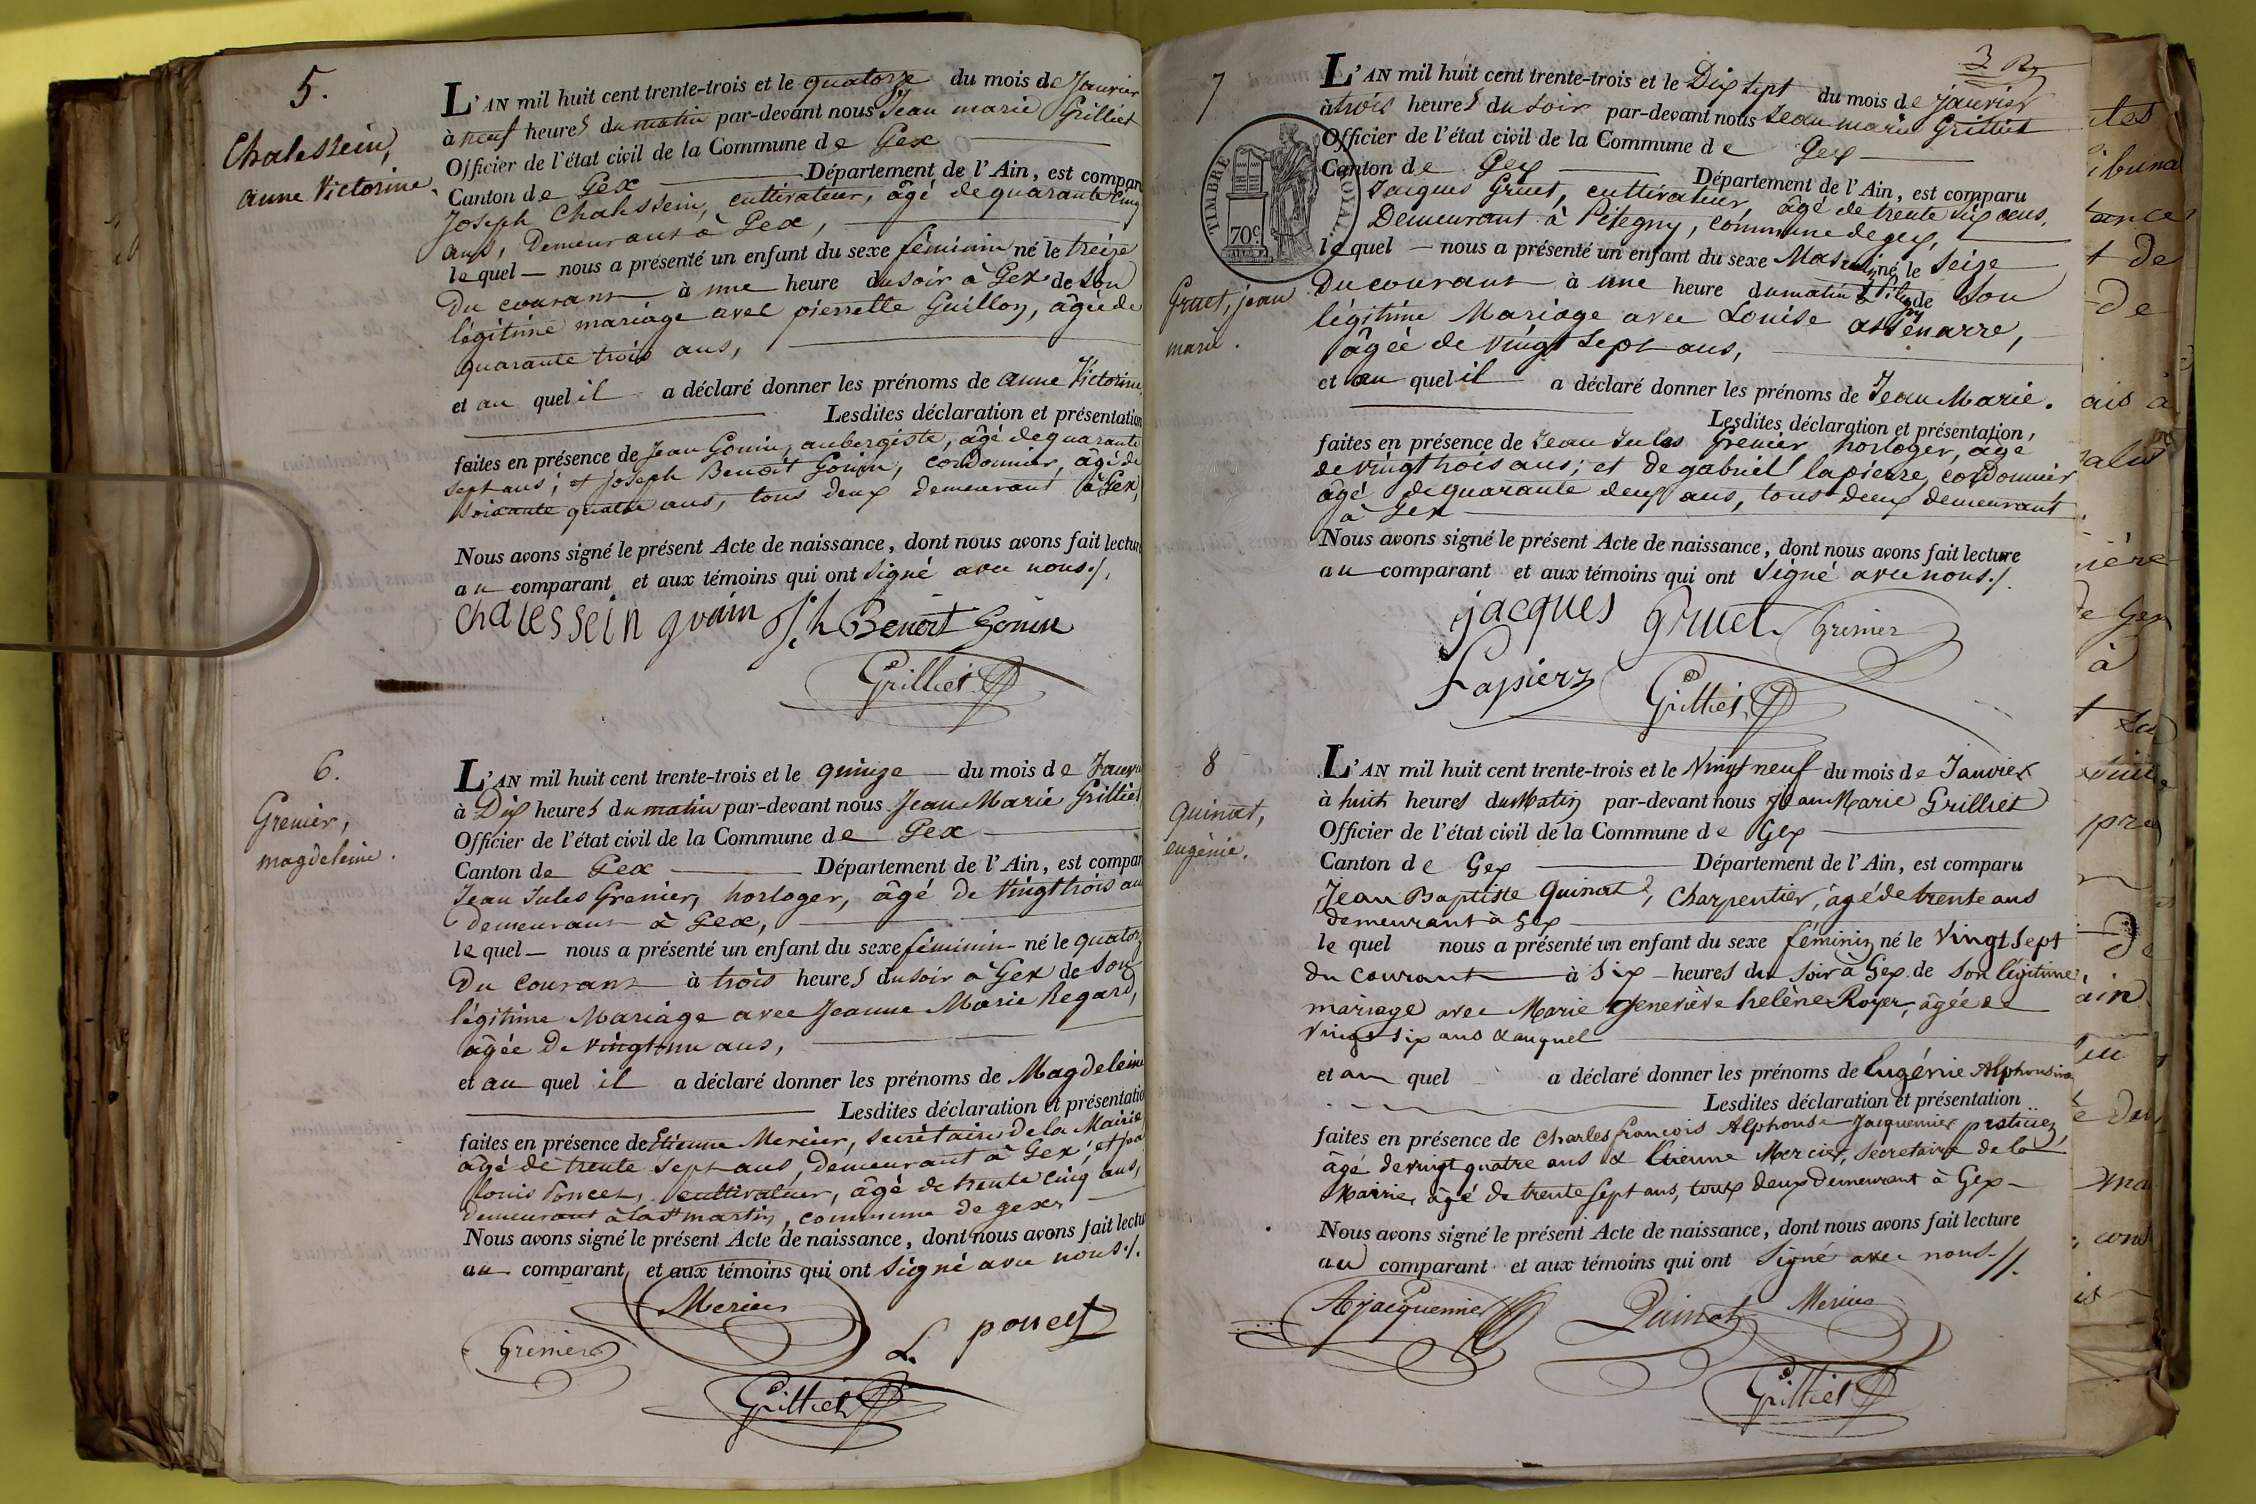 5.
Chalessein,
anne Victorine.
L'AN mil huit cent trente-trois et le quatorze du mois de Janvier
à neuf heures du matin par-devant nous Jean marie Grilliet
Officier de l'état civil de la Commune de Gex
Canton de Gex Département de l'Ain, est comparu
Joseph Chalessein, cultivateur, âgé de quarante cinq
ans, Demeurant à Gex,
le quel nous a présenté un enfant du sexe féminin né le treize
Du courant à une heure du soir à Gex de son
légitime mariage avec pierrette Guillon, âgée de
quarante trois ans,
et au quel il a déclaré donner les prénoms de anne Victorine
Lesdites déclaration et présentation
faites en présence de Jean Gonin, aubergiste, âgé de quarante
sept ans; et Joseph Benoit Gonin, cordonnier, âgé de
soixante quatre ans, tous deux demeurant à Gex,
Nous avons signé le présent Acte de naissance, dont nous avons fait lecture
au comparant et aux témoins qui ont signé avec nous./.
chalessein gonin Jh Benoit Gonin
Grilliet
6.
Grenier,
magdeleine.
L'AN mil huit cent trente-trois et le quinze du mois de Janv
à Dix heures du matin par-devant nous Jean Marie Grilliet
Officier de l'état civil de la Commune de Gex
Canton de Gex Département de l'Ain, est compar
Jean Jules Grenier, horloger, âgé de vingt trois an
demeurant à Gex,
le quel nous a présenté un enfant du sexe féminin né le quator
Du courant à trois heures du soir à Gex de son
légitime Mariage avec Jeanne Marie Regard,
âgée De vingt un ans,
et au quel il a déclaré donner les prénoms de Magdeleine
Lesdites déclaration et présentatio
faites en présence de Etienne Mercier, secrétaire de la Mairie
âgé de trente sept ans, demeurant à Gex; et
louis Poncet, cultivateur, âgé de trente cinq ans,
demeurant à la St martin, commune de gex
Nous avons signé le présent Acte de naissance, dont nous avons fait lectu
au comparant et aux témoins qui ont signé avec nous./.
Mercier
Grenier L. poncet
Grilliet
3
7
TIMBRE ROYAL
70c
Gruet, jean
marie.
L'AN mil huit cent trente-trois et le Dix sept du mois de janvier
à trois heures du soir par-devant nous Jean marie Grilliet
Officier de l'état civil de la Commune de Gex
Canton de Gex Département de l'Ain, est comparu
Jacques Gruet, cultivateur, âgé de trente six ans,
Demeurant à Pitegny, commune de gex,
le quel nous a présenté un enfant du sexe Masculin né le seize
Du courant à une heure du matin à Pitegny de son
légitime Mariage avec Louise
âgée de vingt sept ans,
et au quel il a déclaré donner les prénoms de Jean Marie.
Lesdites déclaration et présentation,
faites en présence de Jean Jules Grenier horloger, âgé
de vingt trois ans; et de gabriel lapierre, cordonnier
âgé de quarante deux ans, tous deux demeurant
à Gex
Nous avons signé le présent Acte de naissance, dont nous avons fait lecture
au comparant et aux témoins qui ont signé avec nous./.
jacques gruet Grenier
Lapierre
Grilliet
8
Quinat,
eugénie.
L'AN mil huit cent trente-trois et le Vingt neuf du mois de Janvier
à huit heures du Matin par-devant nous Jean Marie Grilliet
Officier de l'état civil de la Commune de Gex
Canton de Gex Département de l'Ain, est comparu
Jean Baptiste Quinat, Charpentier, âgé de trente ans
demeurant à Gex
le quel nous a présenté un enfant du sexe féminin né le Vingt Sept
du courant à six heures du soir à Gex de son légitime
mariage avec Marie Geneviève helène Royer, âgée de
vingt six ans & auquel
et au quel a déclaré donner les prénoms de Eugénie Alphonsine
Lesdites déclaration et présentation
faites en présence de Charles françois Alphonse Jacquemier praticien,
âgé de vingt quatre ans & Etienne Mercier, secretaire de la
Mairie, âgé de trente sept ans, tous deux Demeurant à Gex
Nous avons signé le présent Acte de naissance, dont nous avons fait lecture
au comparant et aux témoins qui ont Signé avec nous.//.
Ajacquemier Quinat Mercier
Grilliet